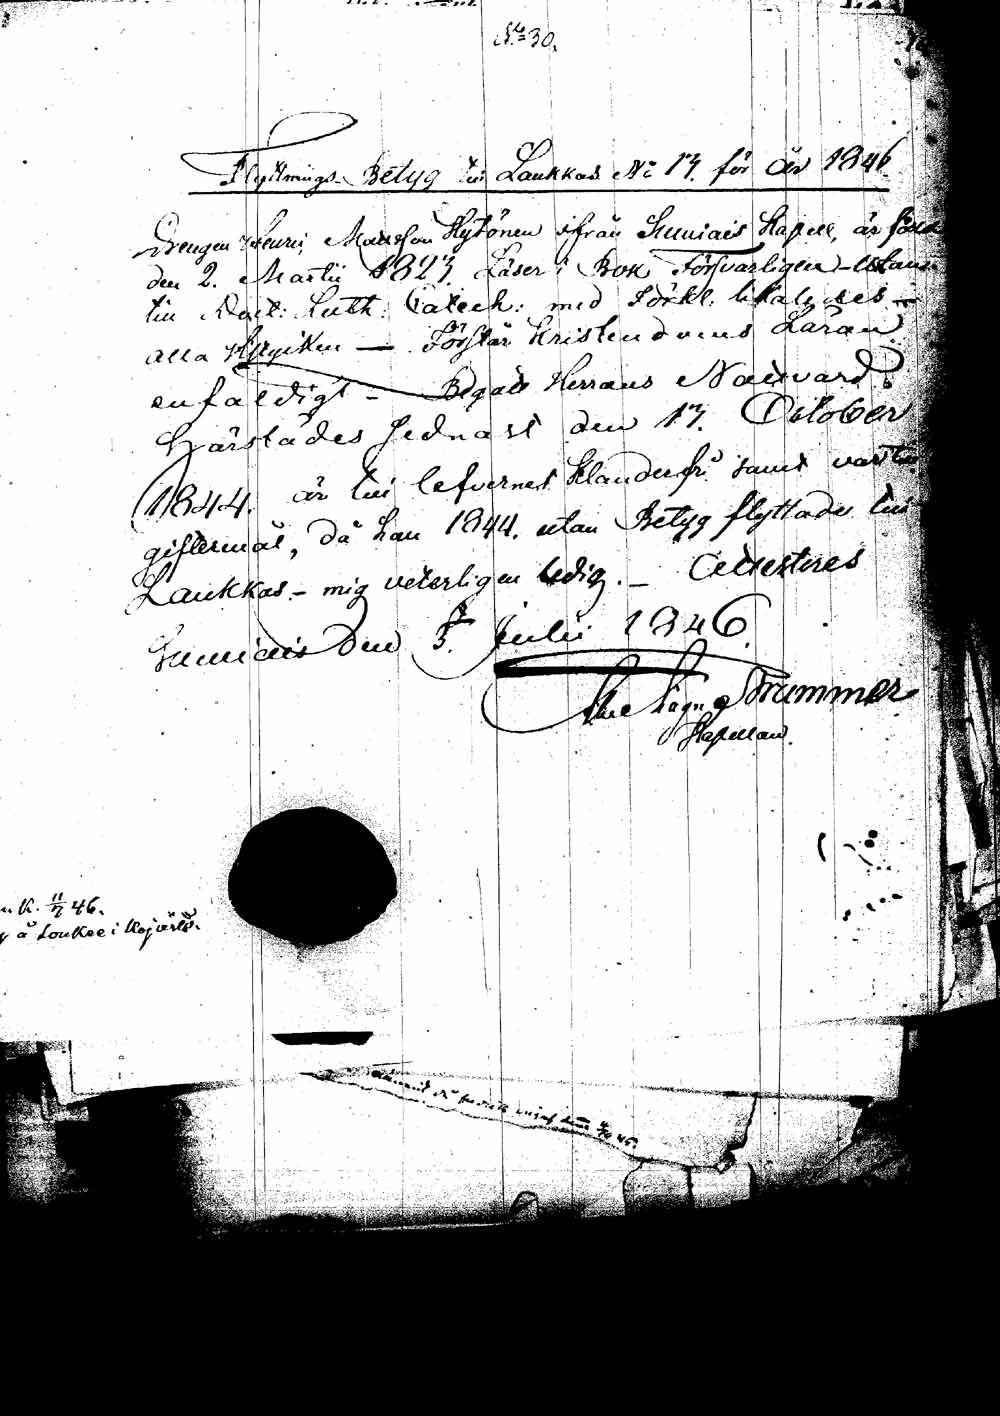 No 30.
Flyttnings Betyg till Laukkas No 17. för år 1846
Drengen Henric Mattsson Hytönen ifrån Sumiais Kapell, är född
den 2. Martii 1823. Läser i Bok försvarligen - utan
till Doct: Luth: Catech: med Förkl:
alla stycken — Förstår Kristendomens Läran
enfaldigt - Begått Herrans Nattvard
härstädes sednast den 17. October
1844. är till lefvernet klanderfri samt var till
giftermål, då han 1844. utan Betyg flyttade till
Laukkas - mig veterligen ledig. - Attesteras
Sumiais den 5. Julii 1846.
Trummer
Kapellan.
11/7 46.
å Loukee i